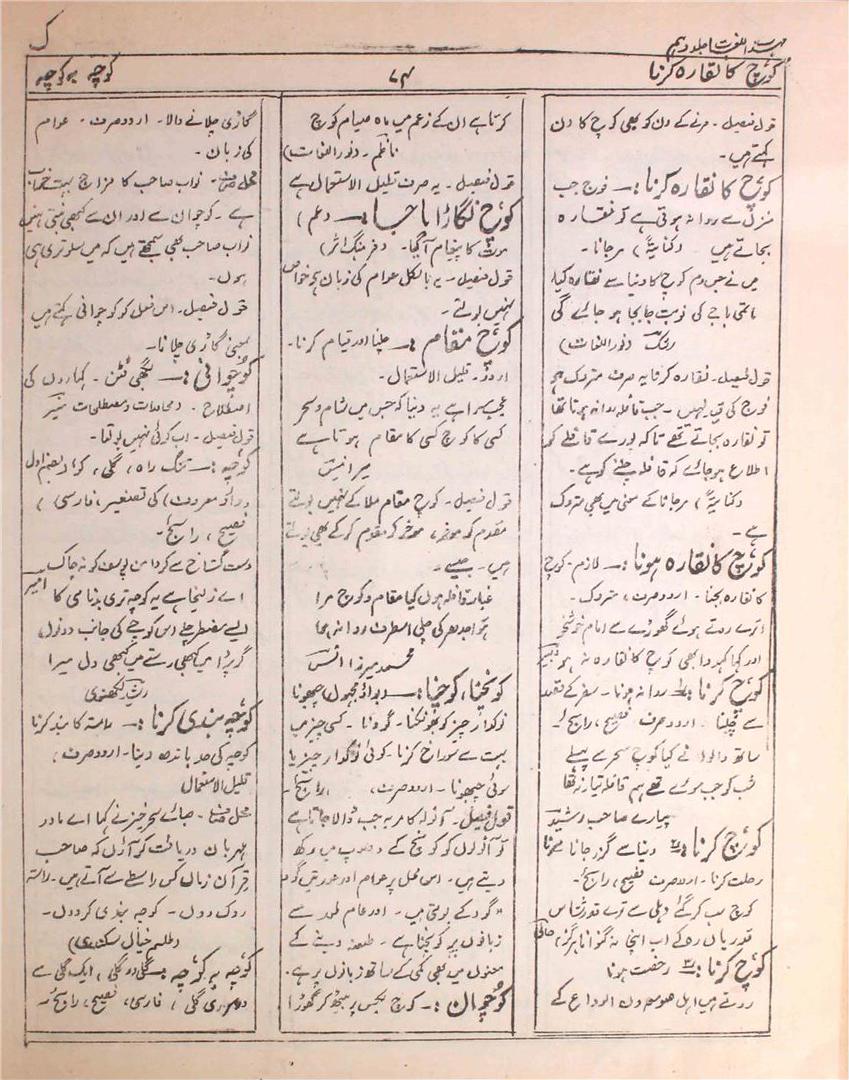 ک
مہذب اللغات جلد دہم
کوچ کا نقارہ کرنا
۷۴
کوچہ بہ کوچہ
قول فیصل۔ مرنے کے دن کو بھی کوچ کا دن
کہتے ہیں۔
کوچ کا نقارہ کرنا:۔ فوج جب
منزل سے روانہ ہوتی ہے تو نقارہ
بجاتے ہیں۔ (کنایۃً) مرجانا۔
میں نے جس دم کوچ کا دنیا سے نقارہ کیا
ماتمی باجے کی نوبت جابجا ہو جائے گی
رشک (نور اللغات)
قول فیصل۔ نقارہ کرنا یہ صرف متروک ہے
فوج کی قید نہیں۔ جب قافلہ روانہ ہوتا تھا
تو نقارہ بجاتے تھے تاکہ پورے قافلے کو
اطلاع ہو جائے کہ قافلہ چلنے کو ہے۔
(کنایۃً) مرجانا کے معنی میں بھی متروک
ہے۔
کوچ کا نقارہ ہونا:۔ لازم۔ کوچ
کا نقارہ بجنا۔ اردو صرف، متروک۔
اترے روتے ہوئے گھوڑے سے امام خوشخو
اور کہا کہدو ابھی کوچ کا نقارہ نہ ہو دبیر
کوچ کرنا:۔ روانہ ہونا۔ سفر کے قصد
سے چلنا۔ اردو صرف، فصیح، رائج۔
ساتھ والوں نے کیا کوچ سحر سے پہلے
شب کو جب سوئے تھے ہم قافلہ تیار نہ تھا
پیارے صاحب رشید
کوچ کرنا:۔ دنیا سے گزر جانا مرنا
رحلت کرنا۔ اردو صرف فصیح، رائج۔
کوچ سب کر گئے دہلی سے ترے قدر شناس
قدر یاں رہ کے اب اپنی نہ گنوانا ہرگز حالی
کوچ کرنا:۔ رخصت ہونا
روتے ہیں اہل صومعہ دن الوداع کے
کرتا ہے ان کے زعم میں ماہ صیام کوچ
ناظم۔ (نور اللغات)
قول فیصل۔ یہ صرف قلیل الاستعمال ہے
کوچ نگاڑا باجا:۔ (عم)
موت کا پیغام آگیا۔ (فرہنگ اثر)
قول فیصل۔ یہ بالکل عوام کی زبان ہے خواص
نہیں بولتے۔
کوچ مقام:۔ چلنا اور قیام کرنا۔
اردو۔ قلیل الاستعمال۔
عجب سرا ہے یہ دنیا کہ جس میں شام و سحر
کسی کا کوچ کسی کا مقام ہوتا ہے
میر انیس
قول فیصل۔ کوچ مقام ملا کے نہیں بولتے
مقدم کو موخر، موخر کو مقدم کر کے بھی بولتے
ہیں۔ جیسے۔
غبار قافلہ ہوں کیا مقام و کوچ مرا
ہوا جدھر کی چلی اسطرف روانہ ہوا
محمد میرزا انس
کونچنا، کوچنا:۔ (بواؤ مجہول) چھونا
نوکدار چیز کو بھونکنا۔ گودنا۔ کسی چیز میں
بہت سے سوراخ کرنا۔ کوئی نوکدار چیز یا
سوئی چبھونا۔ اردو صرف، رائج۔
قول فیصل۔ آنولہ کا مربہ جب ڈالا جاتا ہے
تو آنولوں کو کونچ کے دھوپ میں رکھ
دیتے ہیں۔ اس محل پر عوام اور عورتیں گود
"گود کے بولتی ہیں۔ اور عام طور سے
زبانوں پر کونچنا ہے۔ طعنہ دینے کے
معنوں میں بھی کمی کے ساتھ زبانوں پر ہے۔
کوچبان:۔ کوچ بکس پر بیٹھ کر گھوڑا
گاڑی چلانے والا۔ اردو صرف۔ عوام
کی زبان۔
محل صرف۔ نواب صاحب کا مزاج بہت خراب
ہے۔ کوچوان سے اور ان سے کبھی بنتی نہیں
نواب صاحب بھی سمجھتے ہیں کہ میں سلوتری ہی
ہوں۔
قول فیصل۔ اس فعل کو کوچوانی کہتے ہیں
بمعنی گاڑی چلانا۔
کوچوانی:۔ لگھی ٹٹن۔ کہاروں کی
اصطلاح۔ (محاورات و مصطلحات سیر
قول فیصل۔ اب کوئی نہیں بولتا۔
کوچہ:۔ تنگ راہ، گلی، کو (بضم اول
و واؤ معروف) کی تصغیر، فارسی،
فصیح، رائج۔
دست گستاخ سے کر دامن یوسف کو نہ چاک
اے زلیخا ہے یہ کوچہ تری بدنامی کا امیر
ایسے مضطر چلے اس کوچے کی جانب دونوں
گر پڑا میں کبھی رستے میں کبھی دل میرا
رشید لکھنوی
کوچہ بندی کرنا:۔ راستہ کا بند کرنا
کوچہ کی حد باندھ دینا۔ اردو صرف،
قلیل الاستعمال
محل صرف۔ جائے سحر خیز نے کہا اے مادر
مہربان دریافت کر آؤں کہ صاحب
قرآن زماں کس راستے سے آتے ہیں۔ راستہ
روک دوں۔ کوچہ بندی کر دوں۔
(طلسم خیال سکندری)
کوچہ بہ کوچہ:۔ گلی در گلی، ایک گلی سے
دوسری گلی، فارسی، فصیح، رائج۔